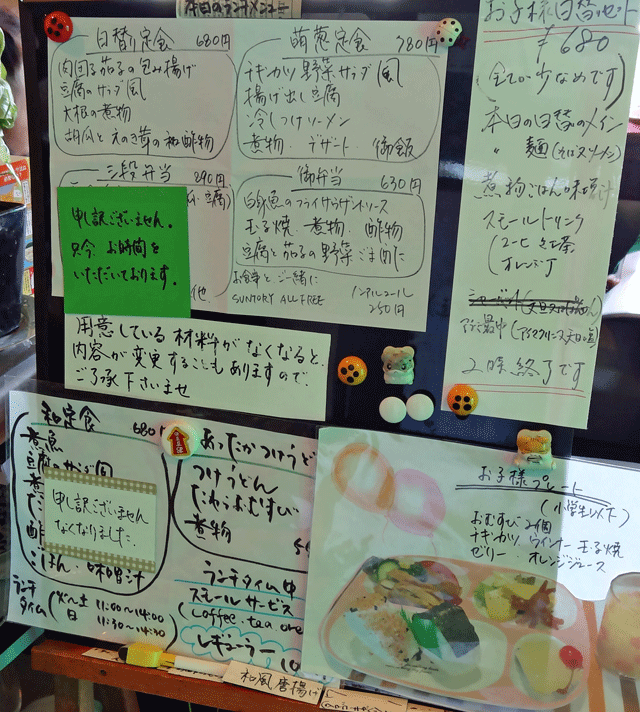 本日のランチメニュー
日替り定食 680円
肉団子茄子の包み揚げ
豆腐のサラダ風
大根の煮物
胡瓜とえのき茸の和酢物
萌葱定食 780円
チキンカツ野菜サラダ風
揚げ出し豆腐
冷しつけソーメン
煮物 デザート 御飯
三段弁当 290円
申訳ございません。
只今 お時間を
いただいております。
他
御弁当 630円
白身魚のフライサラダソース
玉子焼 煮物 酢物
豆腐と茄子の野菜ごまだれ
お食事とご一緒に
SUNTORY ALL FREE ノンアルコール
250円
お子様日替りセット
¥680
(全て少なめです)
本日の日替のメイン
〃 麺(そばorソーメン)
煮物ごはん味噌汁
スモールドリンク
(コーヒー 紅茶
オレンジ)
2時終了です
用意している材料がなくなると、
内容が変更することもありますので、
ご了承下さいませ
和定食 680円
煮魚
豆腐のサラダ風
申訳ございません
なくなりました。
ごはん・味噌汁
ランチタイム (火〜土 11:00〜14:00
日 11:30〜14:30)
あったかつけうどん
つけうどん
たわらおむすび
煮物
ランチタイム中
スモールサービス
(coffee・tea・ore
レギュラー 10
お子様プレート
(小学生以下)
おむすび2個
チキンカツ ウインナー 玉子焼
ゼリー オレンジジュース
和風唐揚げ